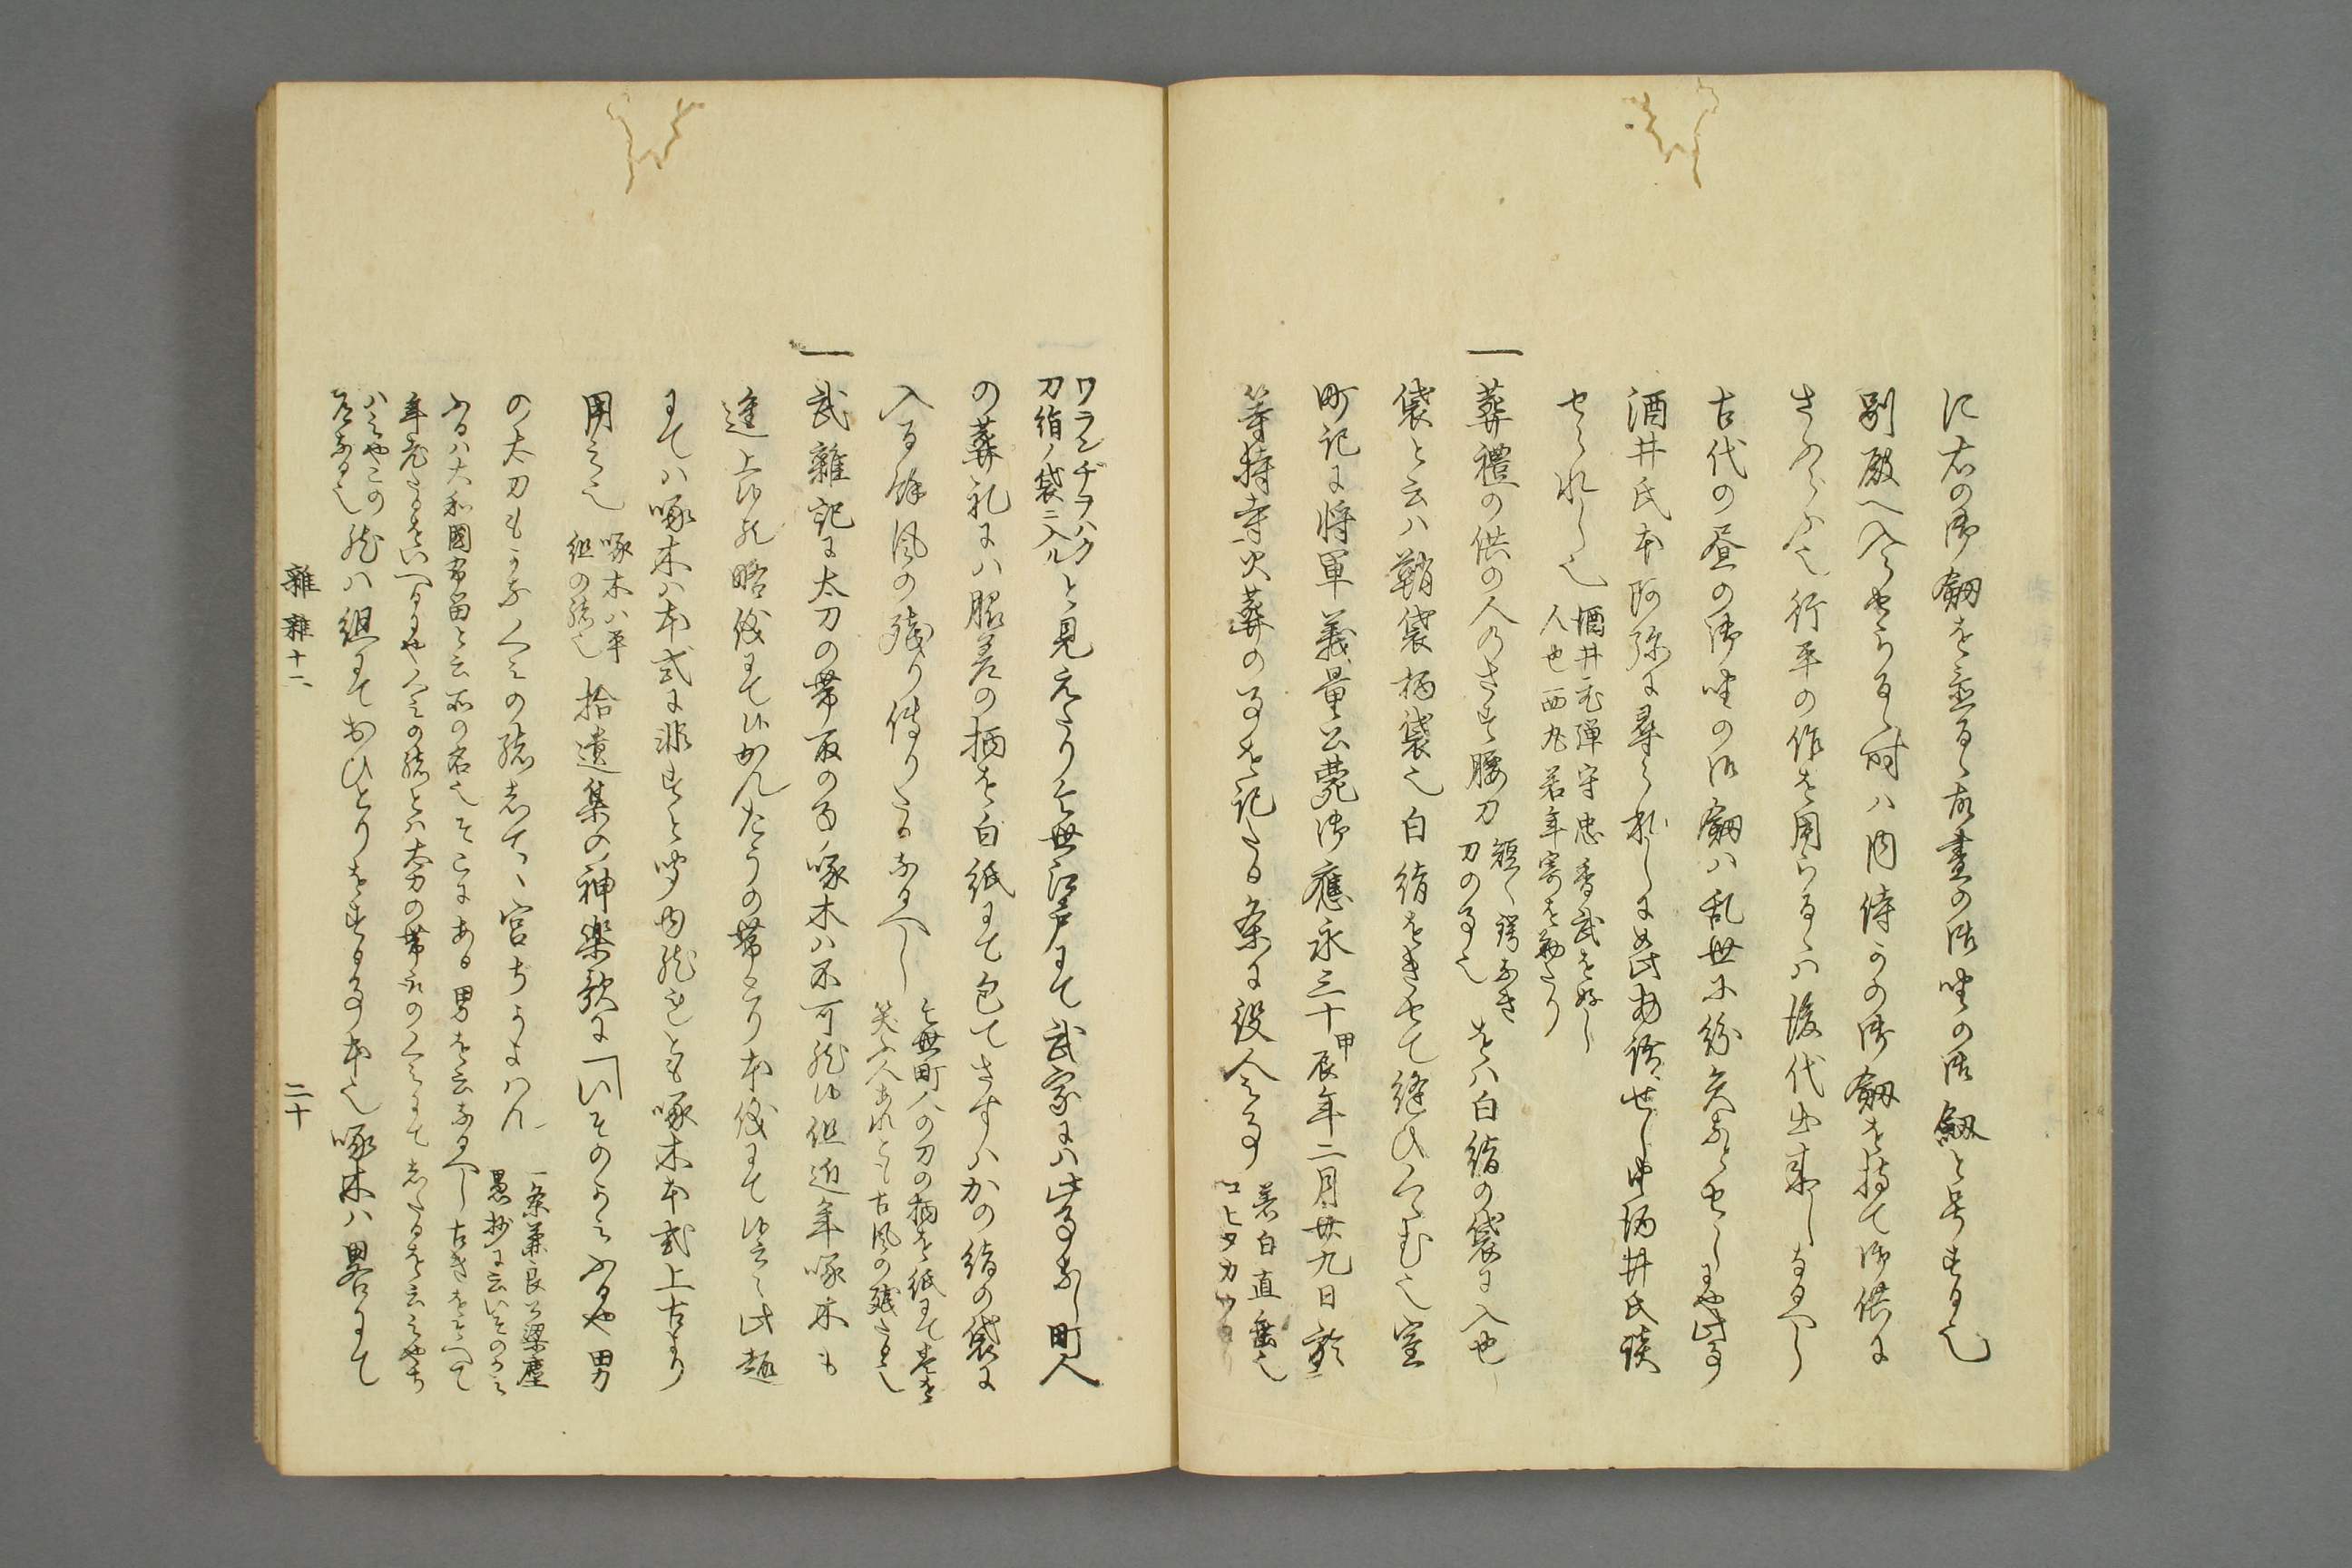 に右の御劔を置るゝ故晝の御座の御劔と号する也
別殿へ入らせらるゝ時ハ内侍この御劔を持て御供に
さふらふ也行平の作を用らるゝハ後代出来しなるへし
古代の昼の御座の御劔ハ乱世に紛失なとせしにや此事
酒井氏本阿弥に尋られしに如此物語せし由酒井氏談
せられし也
酒井飛弾守忠香武を好し
人也西丸若年寄を勤たり
一葬禮の供の人のさす腰刀
短く鍔なき
刀の事也
をハ白絹の袋に入也
袋と云ハ鞘袋柄袋也白絹をきせて縫ひくゝむ也室
町記に将軍義量公薨御應永三十甲辰年二月廿九日於
等持寺火葬の事を記たる条に役人之事
着白直垂也
コヒタカワラ
ワランヂヲハク
刀絹ノ袋ニ入ル
と見えたり今世江戸にて武家にハ此事なし町人
の葬礼にハ脇差の柄を白紙にて包てさすハかの絹の袋に
入る餘風の残り傳りたるなるへし
今世町人の刀の柄を紙にて巻を
笑ふ人あれとも古風の残たる也
一武雜記に太刀の帯取の事啄木ハ不可然候但近年啄木も
進上候然略儀にて候かんたうの帯とり本儀にて候云々此趣
にてハ啄木ハ本式に非すと聞由然れとも啄木本式上古より
用之也
啄木ハ平
組の緒也
拾遺集の神楽歌に「いそのかみふるや男
の太刀もかなくみの緒志てゝ宮ちかよはん
一条兼良公梁塵
愚抄に云いそのかみ
ふるハ大和國布留と云所の名也そこにある男を云なるへし古きをそへて
年老たるをいへるにやくみの緒とハ太刀の帯取のくみにて志たるを云みやち
ハみやこの
道なる也
然ハ組にておひとりをする事本也啄木ハ畧にて
雜雜十二
二十